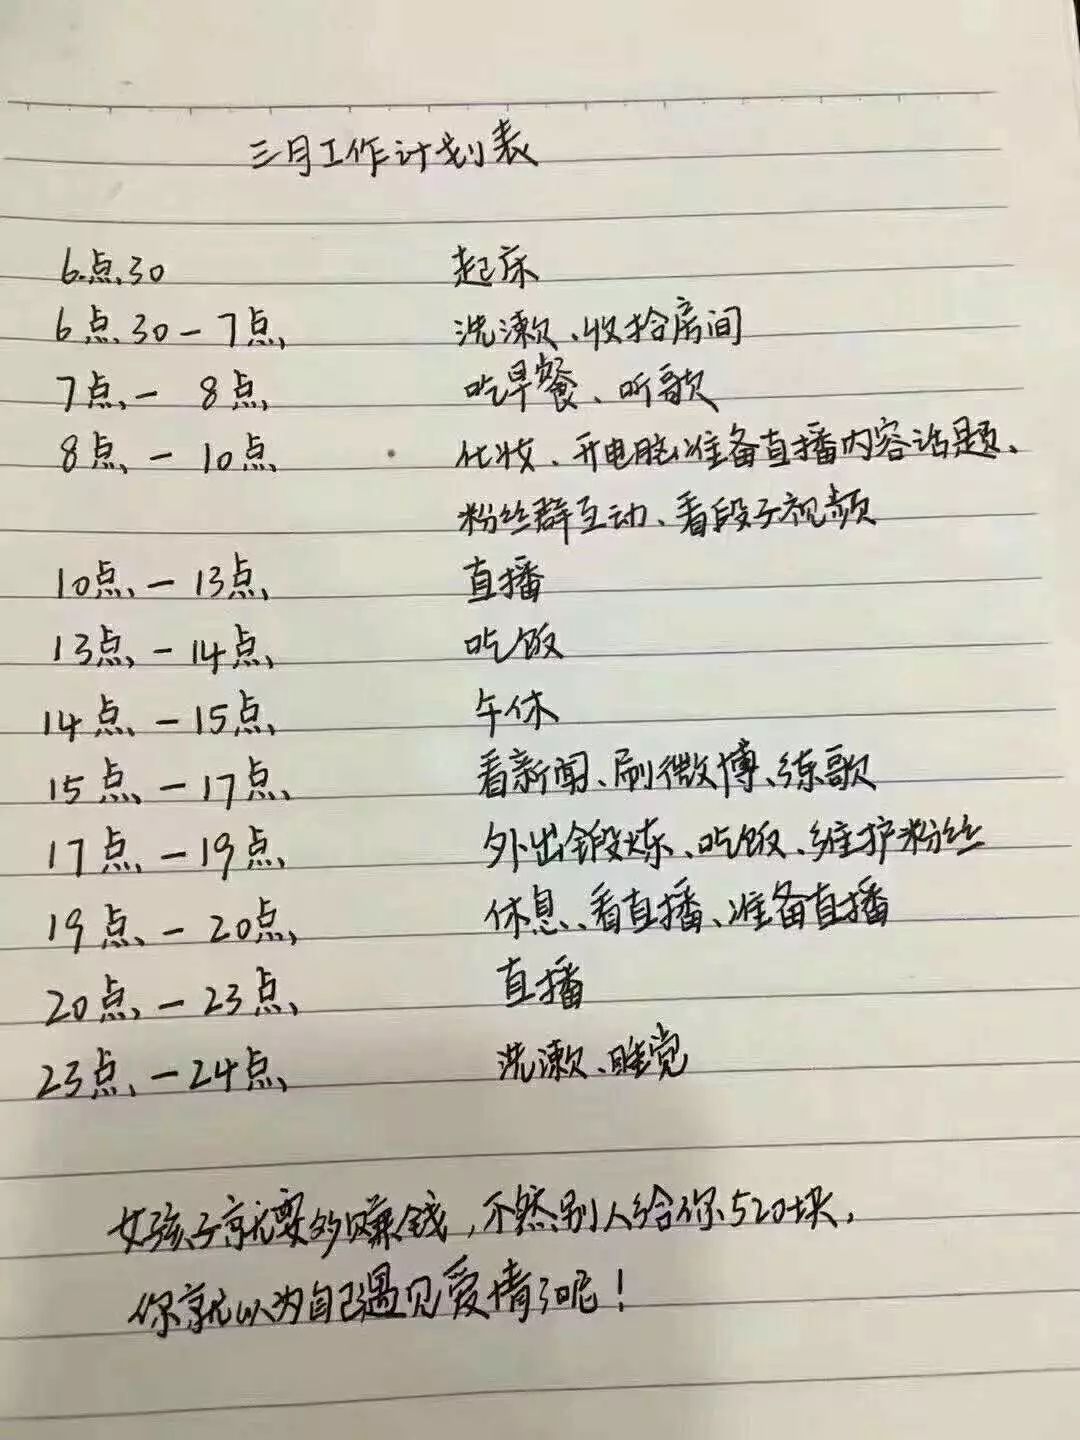 三月工作计划表
6点30 起床
6点30-7点 洗漱、收拾房间
7点-8点 吃早餐、听歌
8点-10点 化妆、开电脑准备直播内容话题、
粉丝群互动、看段子视频
10点-13点 直播
13点-14点 吃饭
14点-15点 午休
15点-17点 看新闻、刷微博、练歌
17点-19点 外出锻炼、吃饭、维护粉丝
19点-20点 休息、看直播、准备直播
20点-23点 直播
23点-24点 洗漱、睡觉
女孩子就要多赚钱,不然别人给你520块,
你就以为自己遇见爱情了呢!